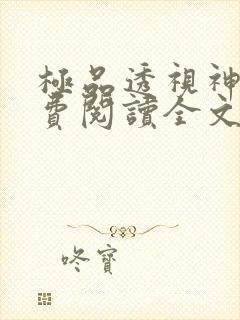 極品透視神
費閱讀全文
咚寶